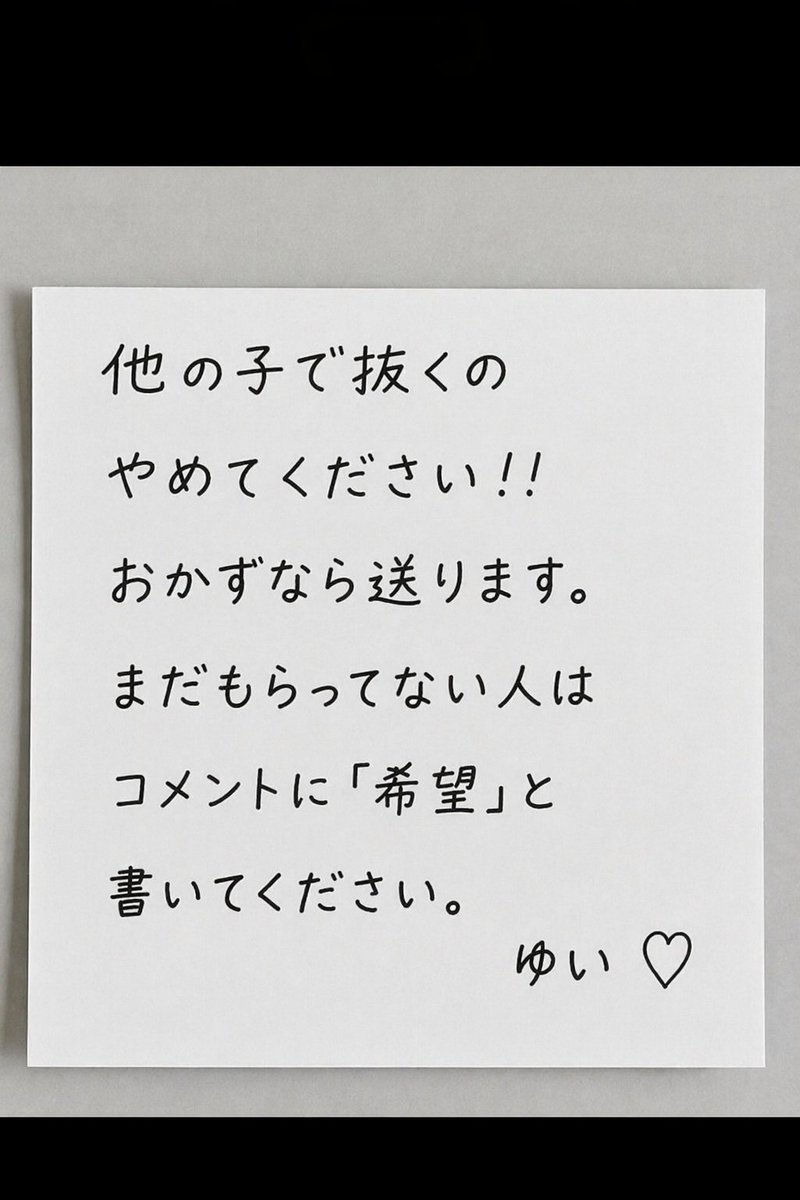 他の子で抜くの
やめてください!!
おかずなら送ります。
まだもらってない人は
コメントに「希望」と
書いてください。
ゆい ♡